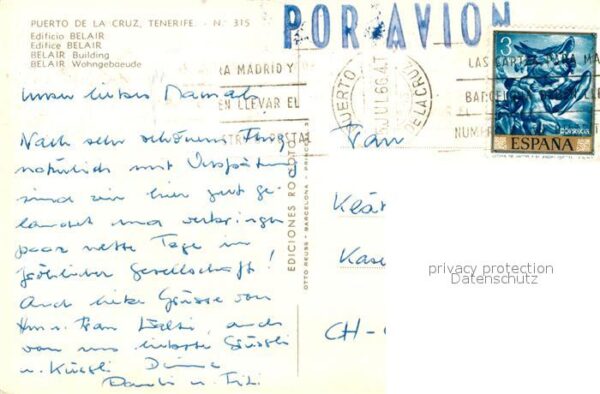 PUERTO DE LA CRUZ, TENERIFE - N.º 315
Edificio BELAIR
Edifice BELAIR
BELAIR Building
BELAIR Wohngebaeude
POR AVION
RA MADRID Y
EN LLEVAR EL
POSTAL
PUERTO DE LA CRUZ
JUL 66
LAS CARTAS PARA MA
BARCEL
NUM
3
ESPAÑA
EDICIONES RO
OTTO REUSS - BARCELONA - PRINCESA
Unser liebes Mamali,
Nach sehr schönem Flug,
natürlich mit Verspätung
sind wir hier gut ge-
landet und verbringen
paar nette Tage in
fröhlicher Gesellschaft!
Auch liebe Grüsse von
Hrn. u. Frau, auch
von uns liebste Grüssli
u. Küssli
u.
Frau
Klä
Kase
CH-
privacy protection
Datenschutz